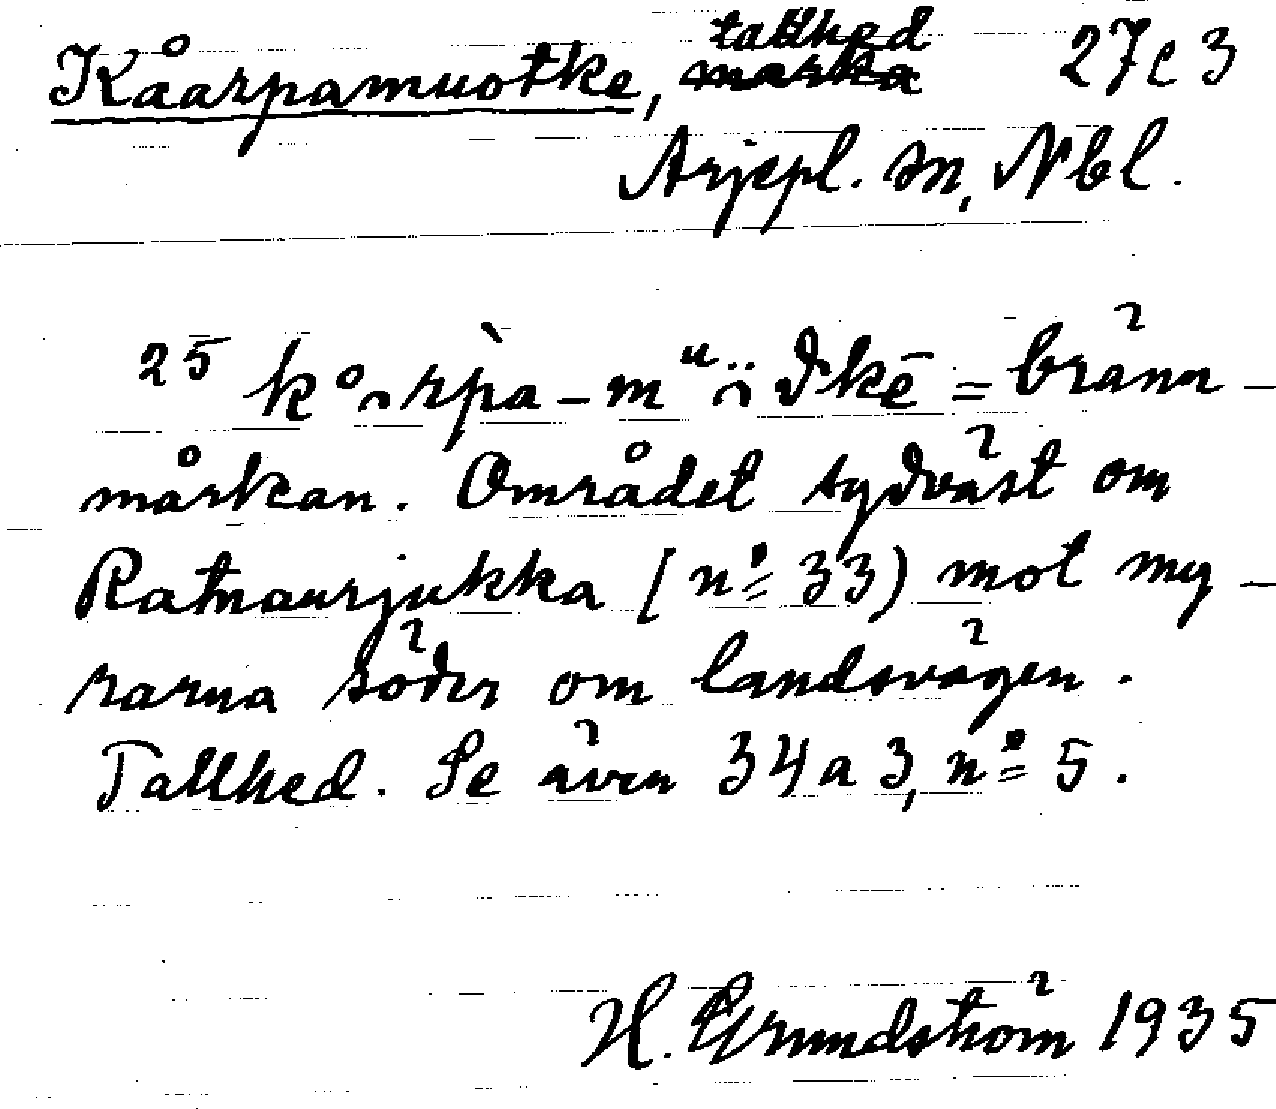 Kåarpamuotke, tallhed 27c3
Arjepl. sn, Nbl.
25 k°arpa-muöđkē = bränn-
mårkan. Området sydväst om
Ratnaurjukka (nº 33) mot my-
rarna söder om landsvägen.
Tallhed. Se även 34a3, nº 5.
H. Grundström 1935